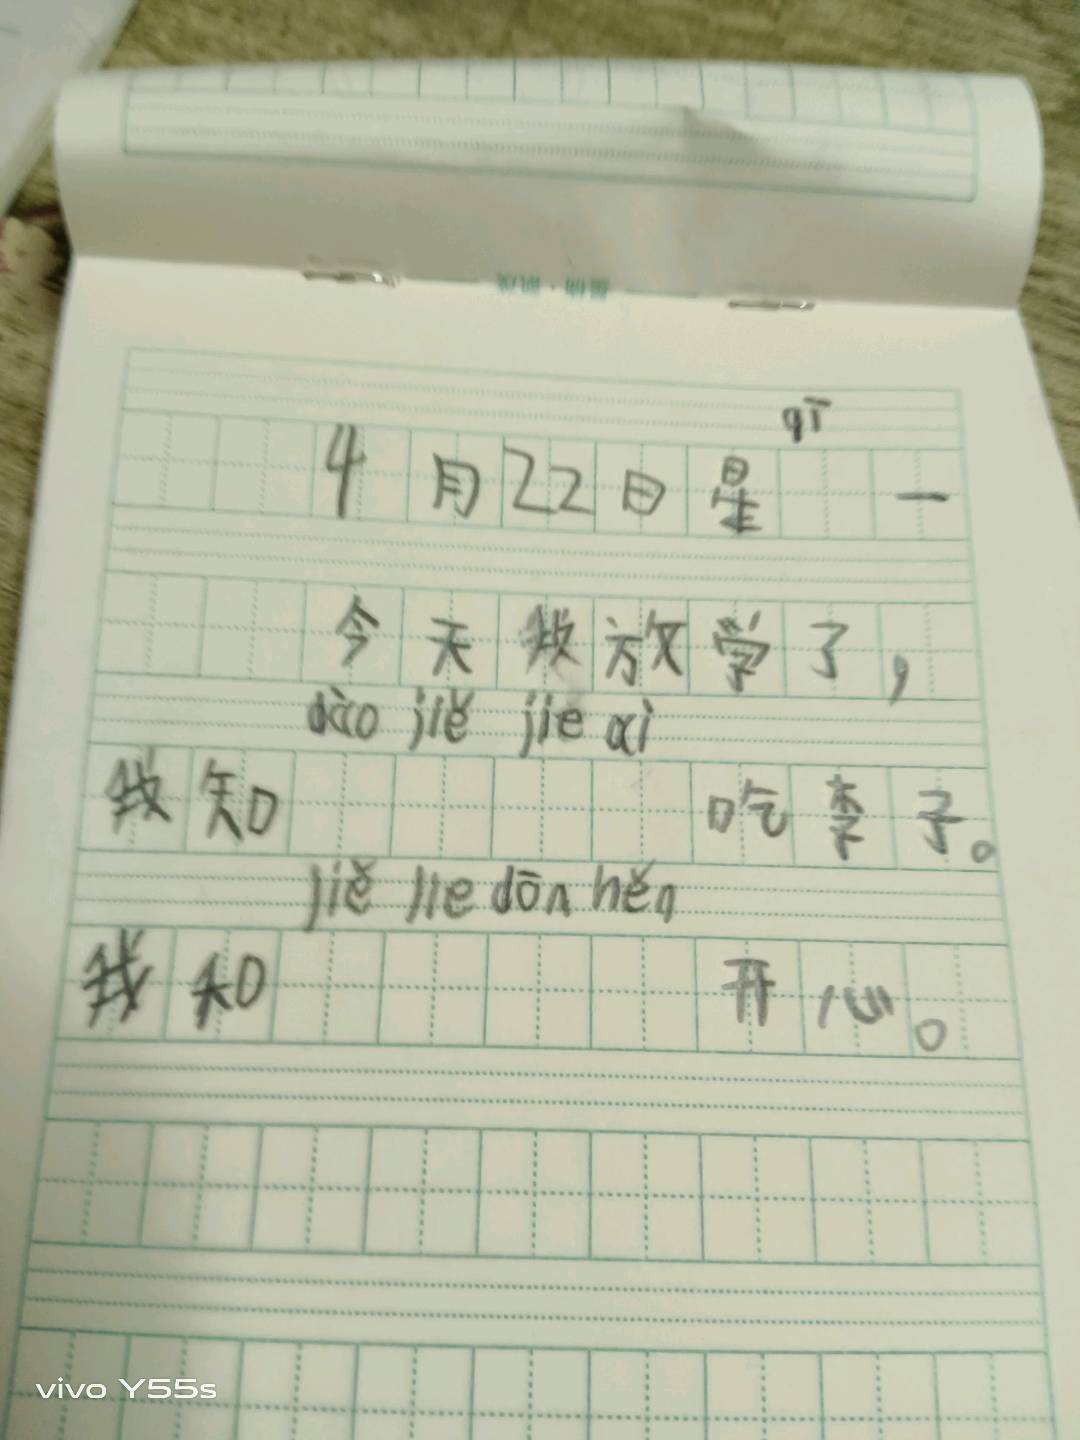 qī
4月22日星 一
今天我放学了，
dào jiě jie qì
我知 吃李子。
jiě jie dōn hěn
我知 开心。
vivo Y55s